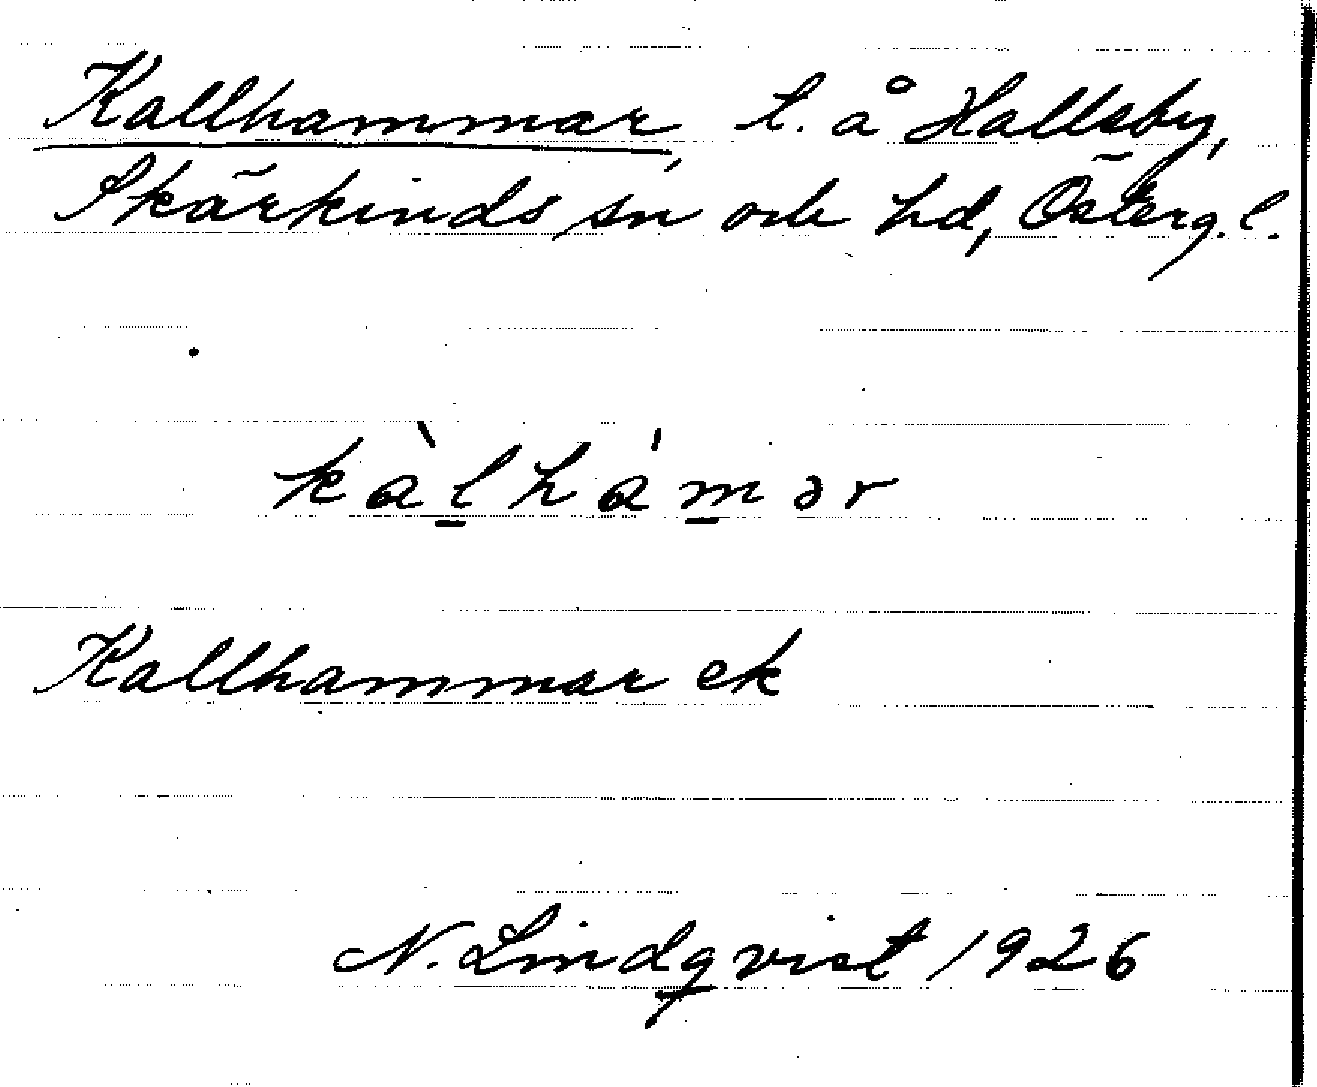 Kallhammar, t. å Hallsby,
Skärkinds sn och hd, Österg. l.
kàl̠hám̠ər
Kallhammar ek
N. Lindqvist 1926